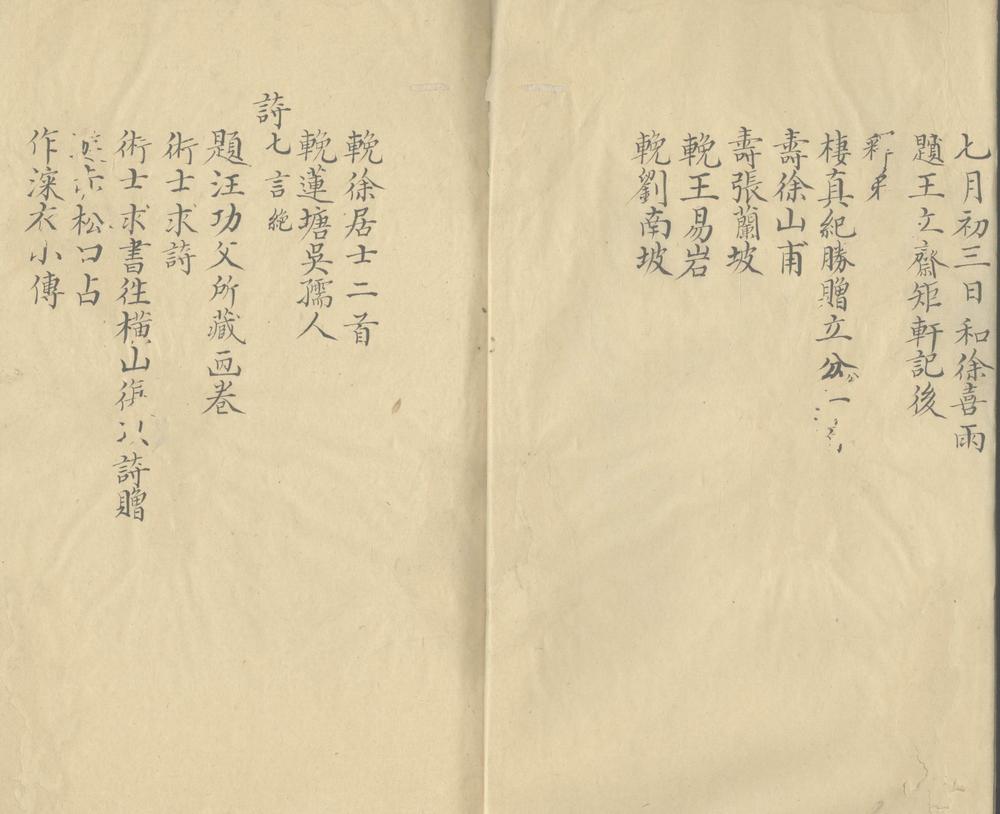 七月初三日和徐喜雨
題王立齋矩軒記後
棲真紀勝贈立
壽徐山甫
壽張蘭坡
輓王易岩
輓劉南坡
輓徐居士二首
輓蓮塘吳孺人
詩七言絶
題汪功父所藏画卷
術士求詩
術士求書徃橫山 以詩贈
松口占
作深衣小傳